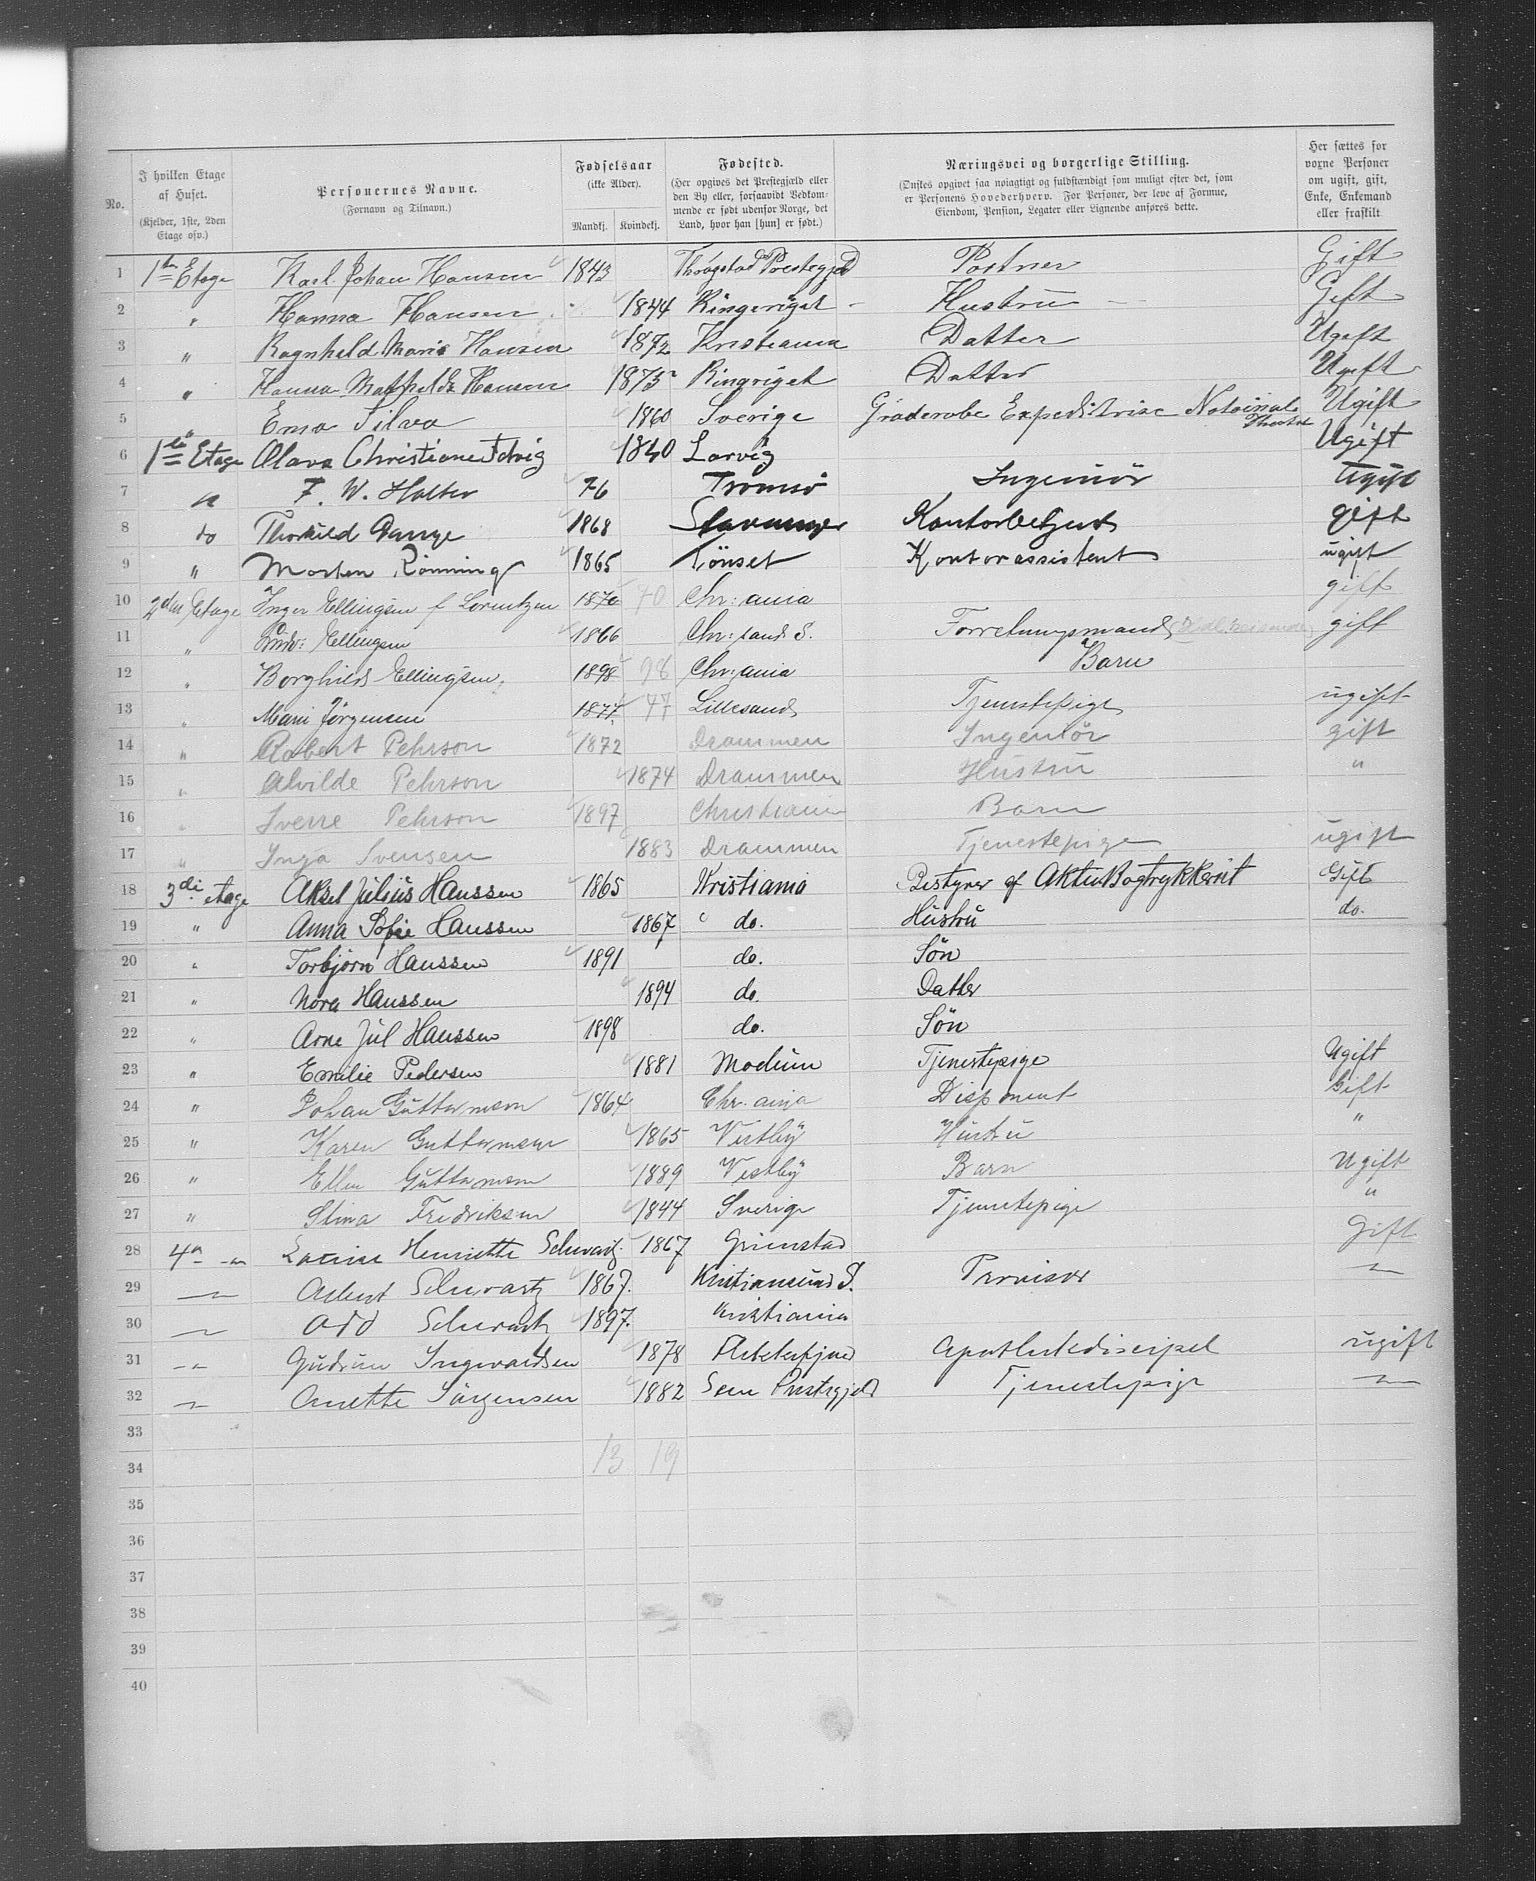 No.
I hvilken Etage af Huset.
(Kjelder, 1ste, 2den Etage osv.)
Personernes Navne.
(Fornavn og Tilnavn.)
Fødselsaar
(ikke Alder).
Mandkj. Kvindekj.
Fødested.
(Her opgives det Prestegjæld eller den By eller, forsaavidt Vedkommende er født udenfor Norge, det Land, hvor han [hun] er født.)
Næringsvei og borgerlige Stilling.
(Ønskes opgivet saa nøiagtigt og fuldstændigt som muligt efter det, som er Personens Hovederhverv. For Personer, der leve af Formue, Eiendom, Pension, Legater eller Lignende anføres dette.
Her sættes for voxne Personer om ugift, gift, Enke, Enkemand eller fraskilt
1 1ste Etage Karl Johan Hansen 1843 Thrøgstad Prestegjeld Postner Gift
2 " Hanna Hansen 1844 Ringeriget - Hustru - Gift
3 " Ragnhild Marie Hansen 1872 Kristiania Datter Ugift
4 " Hanna Mathilda Hansen 1875 Ringriget Datter Ugift
5 " Ema Silva 1860 Sverige Graderobe Expeditrise Notoinal Theatret Ugift
6 1ste Etage Olava Christiane Fedvig 1840 Larvig Ugift
7 " F. W. Holter 76 Tromsø Ingeniør Ugift
8 do Thorkild Dange 1868 Stavanger Kontorbetjent gift
9 " Morten Rønning 1865 Tönset Kontorassistent ugift
10 2den Etage Inger Ellingsen f Lorentzen 1870 70 Chr: ania gift
11 " Ellingsen 1866 Chr: sand S. Forretningsmand gift
12 " Borghild Ellingsen 1898 98 Chr: ania Barn
13 " Marie Jørgensen 1877 47 Lillesand Tjenestepige ugift
14 " Robert Pehrson 1872 Drammen Ingeniør gift
15 " Alvilde Pehrson 1874 Drammen Hustru "
16 " Sverre Pehrson 1897 Christiania Barn
17 " Inga Svensen 1883 Drammen Tjenestepige ugift
18 3die etage Aksel Julius Hanssen 1865 Kristiania Bestyrer af AktieBogtrykkeriet Gift
19 " Anna Sofie Hanssen 1867 " do. Hustru do.
20 " Torbjørn Hanssen 1891 do. Søn
21 " Nora Hanssen 1894 do. Datter
22 " Arne Jul Hanssen 1898 do. Søn
23 " Emilie Pedersen 1881 Modum Tjenestepige Ugift
24 " Johan Guttormsen 1864 Chr. ania Disponent Gift
25 " Karen Guttormsen 1865 Vestby Hustru "
26 " Ellen Guttormsen 1889 Vestby Barn Ugift
27 " Stina Fredriksen 1844 Sverige Tjenestepige "
28 4 Louise Henriette Schwartz 1867 Grimstad Gift
29 " Albert Schwartz 1867. Kristiansund S. Provisor "
30 " Odd Schwartz 1897. Kristiania
31 " Gudrun Ingvaldsen 1878 Flekkefjord Apothekediscipel ugift
32 " Anette Jørgensen 1882 Sem Prestegjeld Tjenestepige "
33
34 13 19
35
36
37
38
39
40